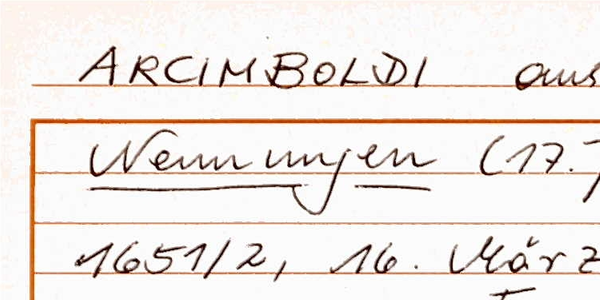 ARCIMBOLDI aus
Nennungen (17.
1651/2, 16. März